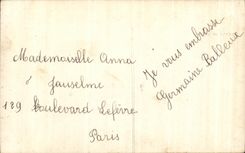 Mademoiselle Anna
Jauselme
189 Boulevard Lefèvre
Paris
Je vous embrasse
Germaine